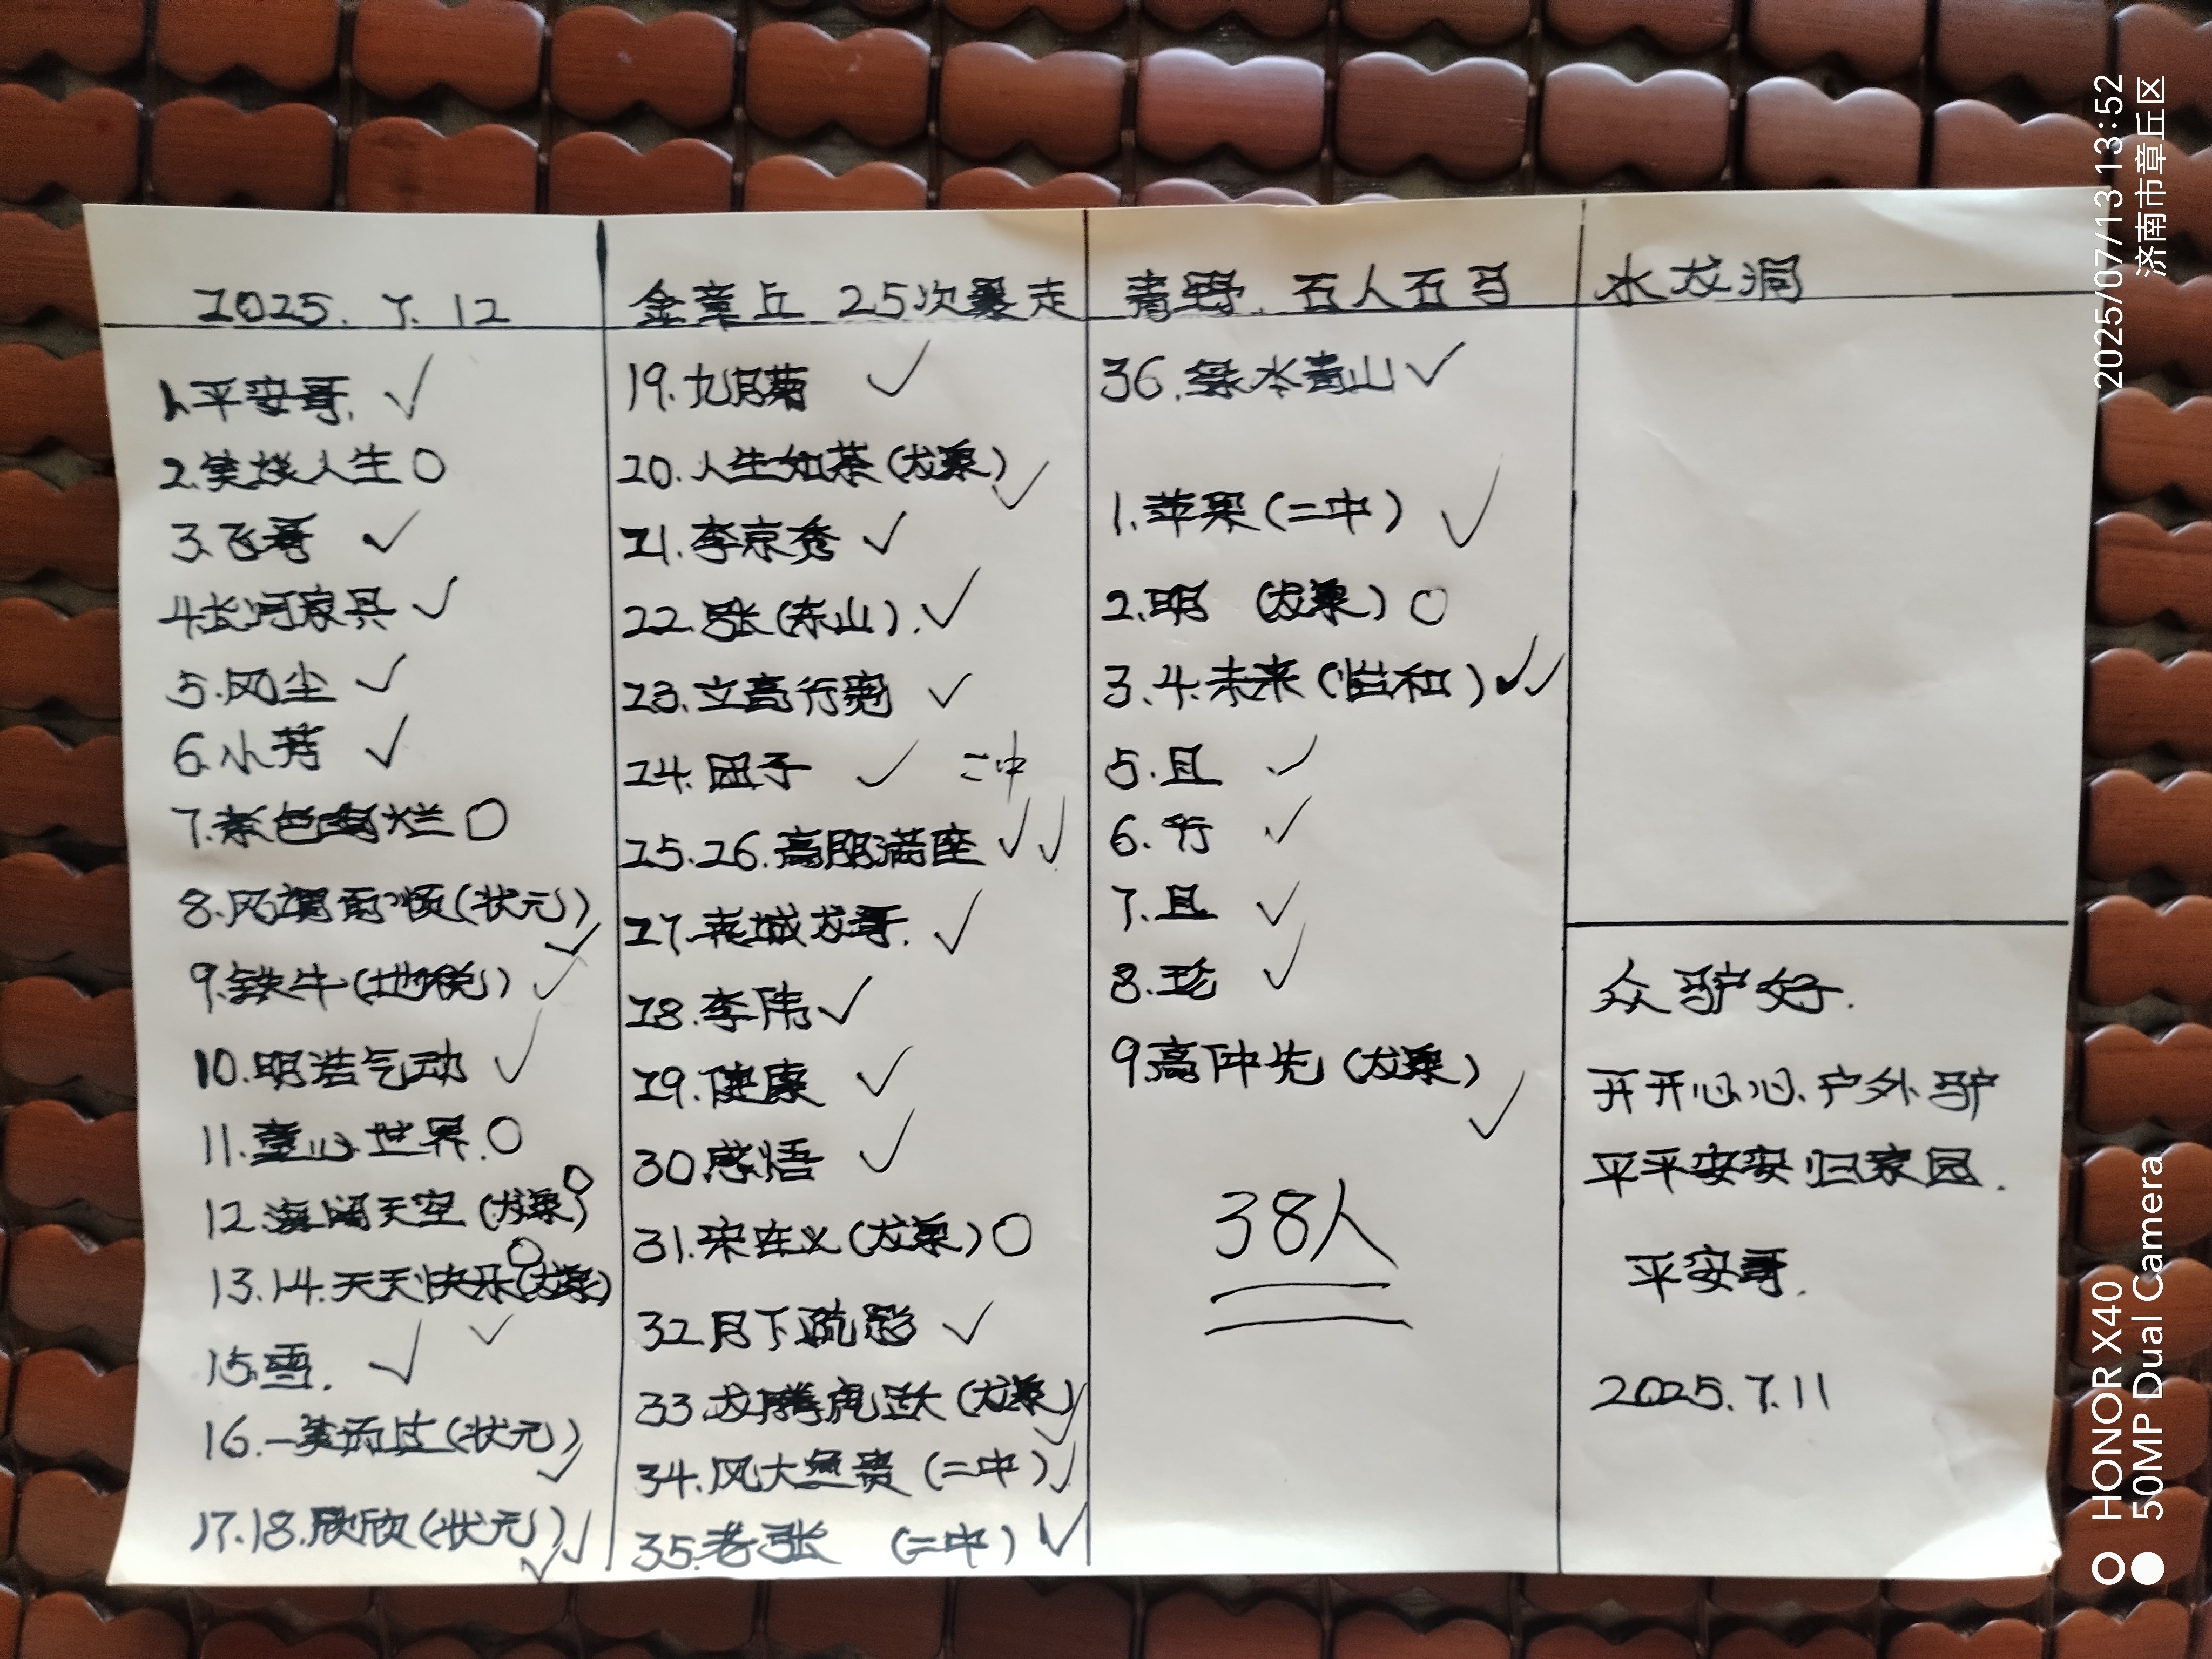 2025.7.12
金章丘 25次暴走
青野 石人石马
水龙洞
1.平安哥. ✓
2.笑谈人生 ○
3.飞哥 ✓
4.长河家具 ✓
5.风尘 ✓
6.小芳 ✓
7.紫色绚烂 ○
8.风调雨顺(状元) ✓
9.铁牛(地税) ✓
10.明浩气动 ✓
11.童心世界. ○
12.海阔天空(龙泉) ○
13.14.天天快乐(龙泉) ○ ✓
15.雪. ✓
16.一笑而过(状元) ✓
17.18.欣欣(状元) ✓✓
19.九月菊 ✓
20.人生如茶(龙泉) ✓
21.李京秀 ✓
22.张(东山). ✓
23.立高行宽 ✓
24.团子 ✓ 二中
25.26.高朋满座 ✓✓
27.花城龙哥. ✓
28.李伟 ✓
29.健康 ✓
30.感悟 ✓
31.宋在义(龙泉) ○
32.月下疏影 ✓
33.龙腾虎跃(龙泉) ✓
34.风大鱼贵(二中) ✓
35.老张 (二中) ✓
36.绿水青山 ✓
1.苹果(二中) ✓
2.明 (龙泉) ○
3.4.未来(怡和) ✓✓
5.且 ✓
6.行 ✓
7.且 ✓
8.珍 ✓
9.高仲先(龙泉) ✓
38人
众驴好.
开开心心户外驴
平平安安归家园.
平安哥.
2025.7.11
2025/07/13 13:52
济南市章丘区
HONOR X40
50MP Dual Camera